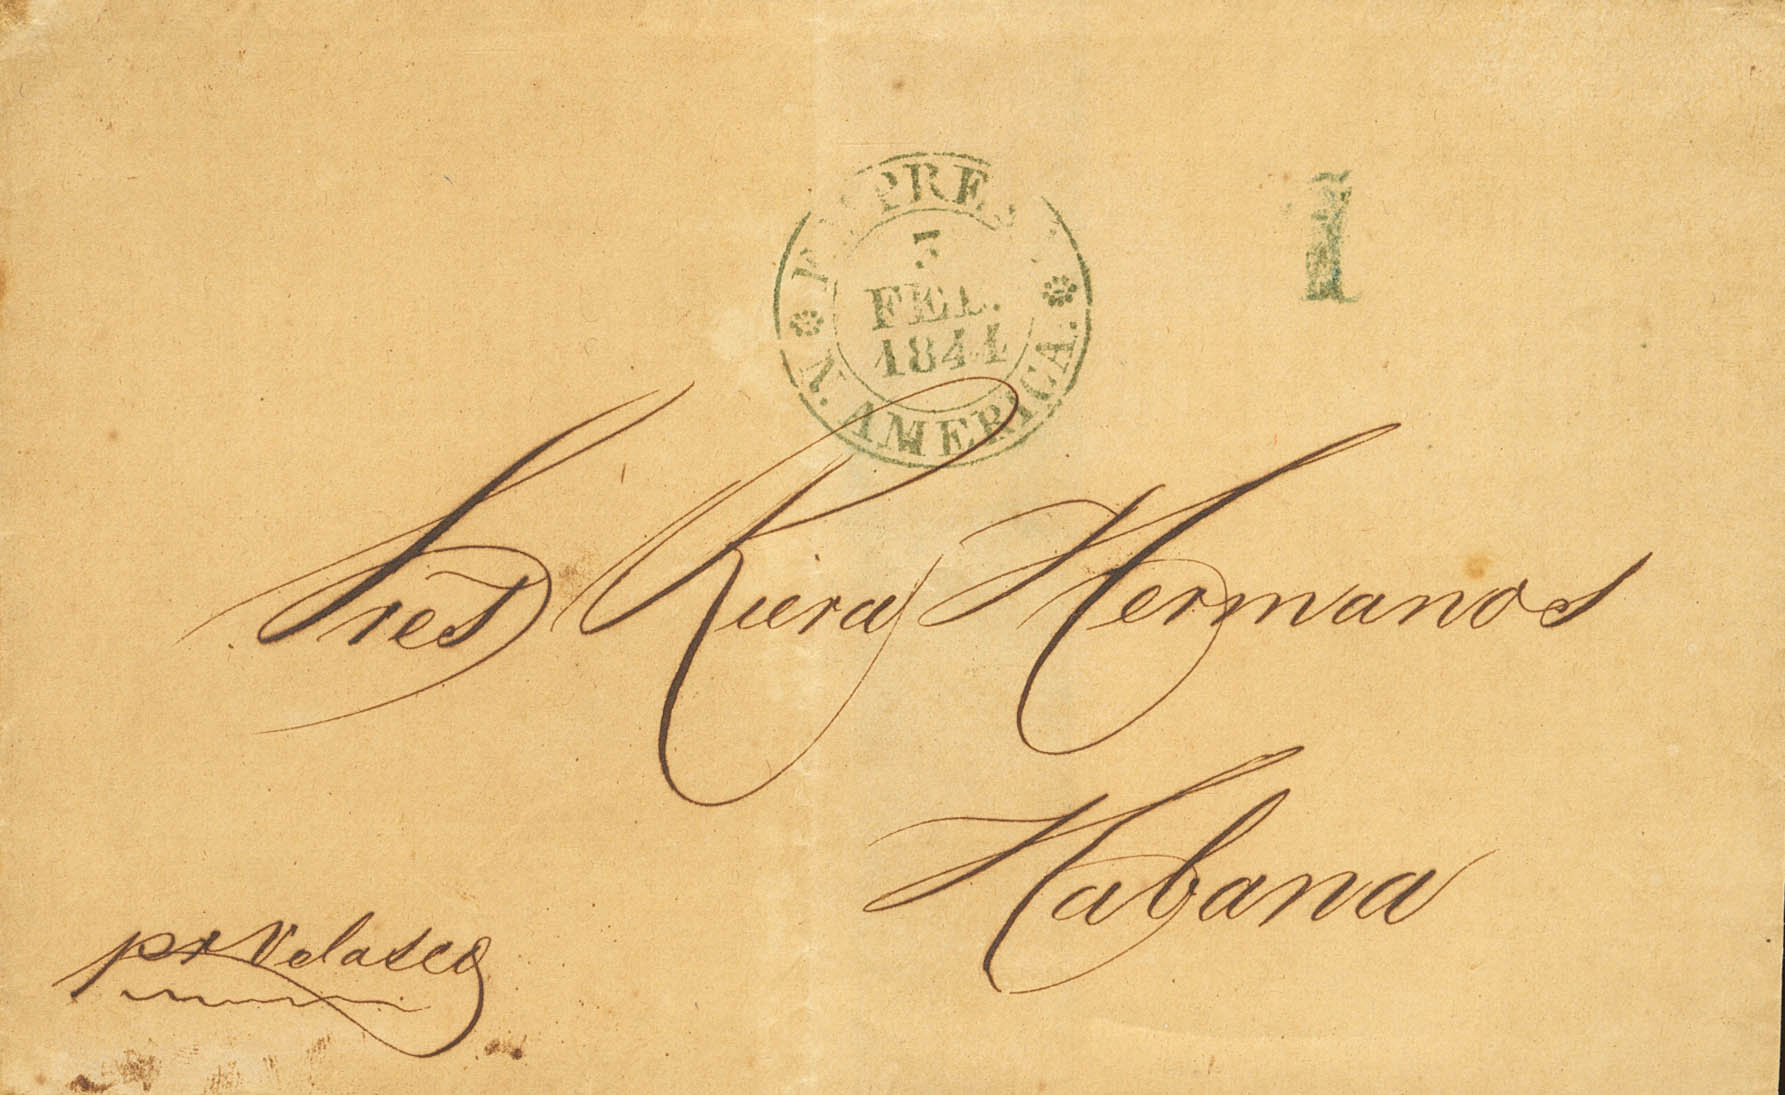 EMPRESA
N. AMERICA.
3
FEB.
1844
1
Sres Riera Hermanos
Habana
pr Velasco